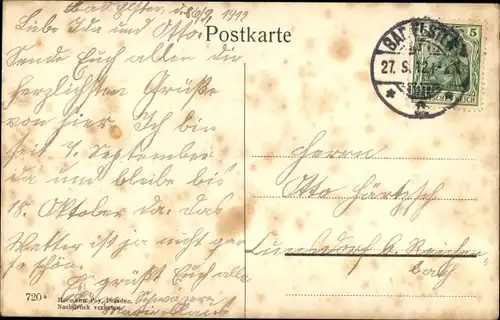 Bad Elster, d. 26/9 1912
Liebe Ida und Otto!
Sende Euch allen die
herzlichsten Grüße
von hier. Ich bin
seit 7. September
da und bleibe bis
10. Oktober da. Das
Wetter ist ja nicht gar
so schön. Es grüßt Euch alle
Schwägerin
Postkarte
BAD ELSTER
27. 9. 12
5
DEUTSCHES REICH
Herrn
Otto Härtzsch
Cunsdorf b. Reichen-
bach
720
Hermann Poy, Dresden.
Nachdruck verboten.